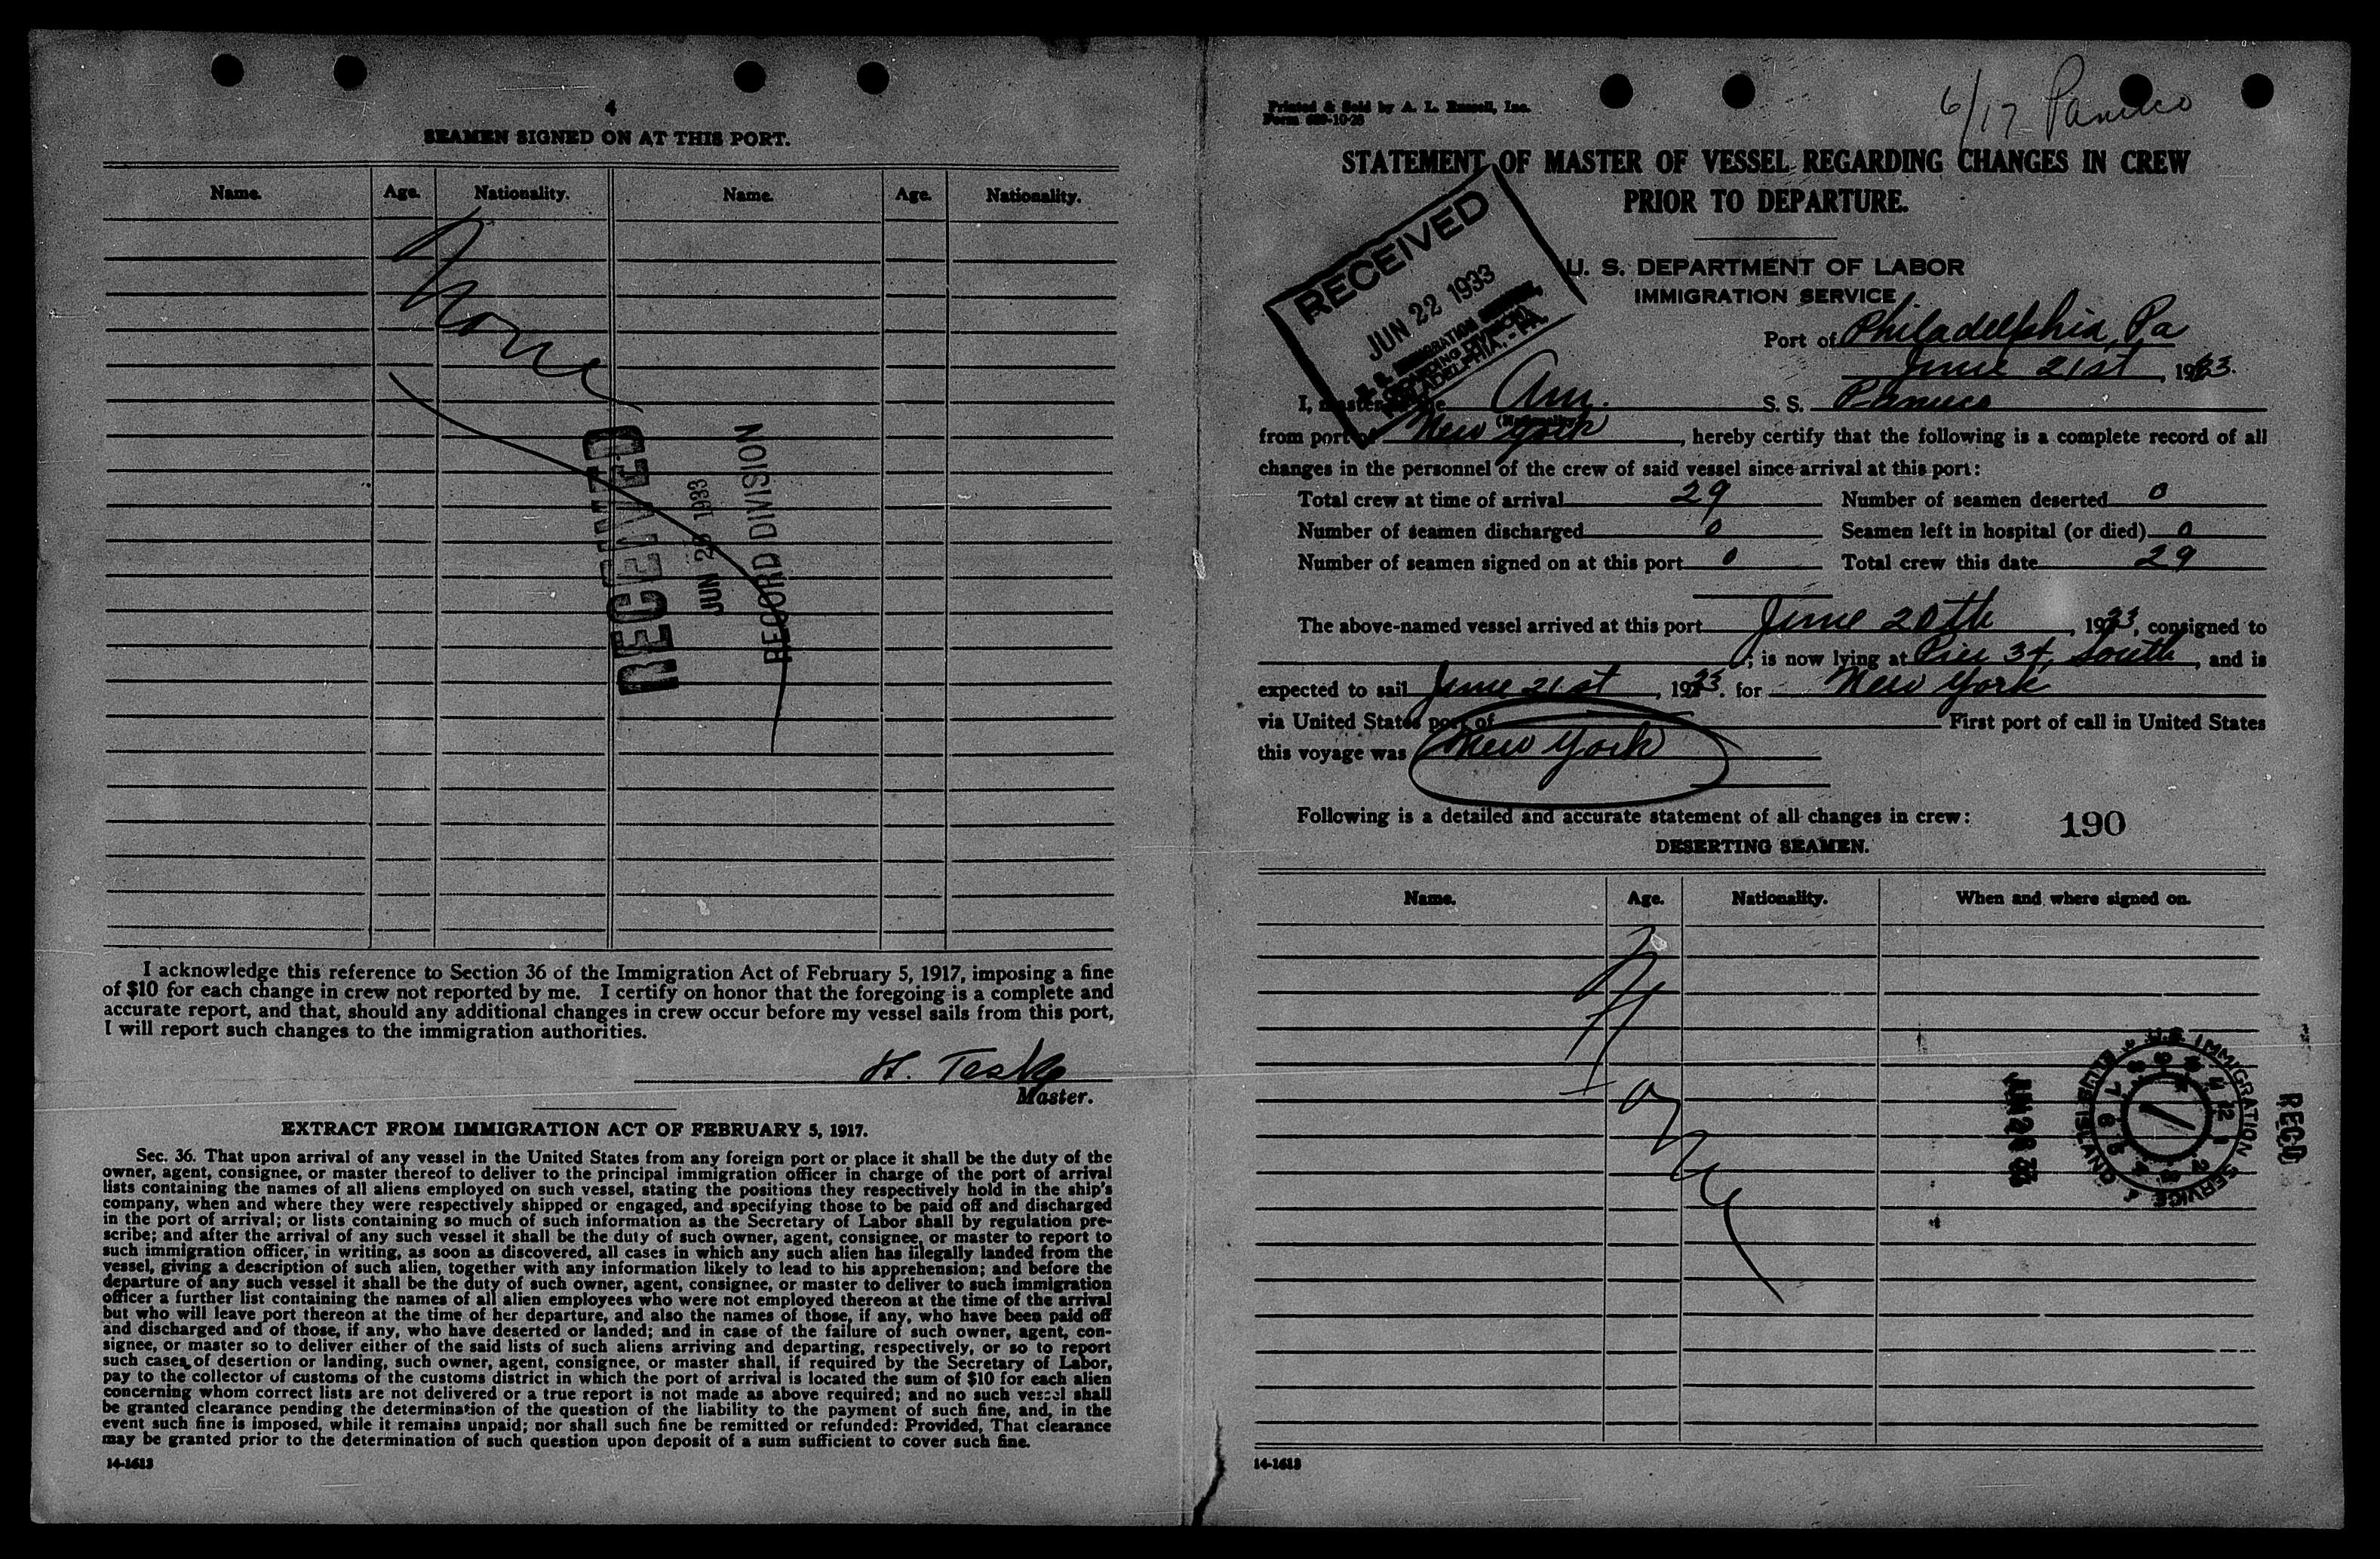 4
SEAMEN SIGNED ON AT THIS PORT.
Name. Age. Nationality. Name. Age. Nationality.
None
RECEIVED
JUN 1933
RECORD DIVISION
I acknowledge this reference to Section 36 of the Immigration Act of February 5, 1917, imposing a fine
of $10 for each change in crew not reported by me. I certify on honor that the foregoing is a complete and
accurate report, and that, should any additional changes in crew occur before my vessel sails from this port,
I will report such changes to the immigration authorities.
H. Teske
Master.
EXTRACT FROM IMMIGRATION ACT OF FEBRUARY 5, 1917.
Sec. 36. That upon arrival of any vessel in the United States from any foreign port or place it shall be the duty of the
owner, agent, consignee, or master thereof to deliver to the principal immigration officer in charge of the port of arrival
lists containing the names of all aliens employed on such vessel, stating the positions they respectively hold in the ship's
company, when and where they were respectively shipped or engaged, and specifying those to be paid off and discharged
in the port of arrival; or lists containing so much of such information as the Secretary of Labor shall by regulation pre-
scribe; and after the arrival of any such vessel it shall be the duty of such owner, agent, consignee, or master to report to
such immigration officer, in writing, as soon as discovered, all cases in which any such alien has illegally landed from the
vessel, giving a description of such alien, together with any information likely to lead to his apprehension; and before the
departure of any such vessel it shall be the duty of such owner, agent, consignee, or master to deliver to such immigration
officer a further list containing the names of all alien employees who were not employed thereon at the time of the arrival
but who will leave port thereon at the time of her departure, and also the names of those, if any, who have been paid off
and discharged and of those, if any, who have deserted or landed; and in case of the failure of such owner, agent, con-
signee, or master so to deliver either of the said lists of such aliens arriving and departing, respectively, or so to report
such cases of desertion or landing, such owner, agent, consignee, or master shall, if required by the Secretary of Labor,
pay to the collector of customs of the customs district in which the port of arrival is located the sum of $10 for each alien
concerning whom correct lists are not delivered or a true report is not made as above required; and no such vessel shall
be granted clearance pending the determination of the question of the liability to the payment of such fine, and, in the
event such fine is imposed, while it remains unpaid; nor shall such fine be remitted or refunded: Provided, That clearance
may be granted prior to the determination of such question upon deposit of a sum sufficient to cover such fine.
14-1613
Printed & Sold by A. L. Russell, Inc.
6/17 Panuco
STATEMENT OF MASTER OF VESSEL REGARDING CHANGES IN CREW
PRIOR TO DEPARTURE.
RECEIVED
JUN 22 1933
PHILADELPHIA, - PA.
U. S. DEPARTMENT OF LABOR
IMMIGRATION SERVICE
Port of Philadelphia, Pa
June 21st, 1933.
I, master of the Am. S. S. Panuco
from port of New York, hereby certify that the following is a complete record of all
changes in the personnel of the crew of said vessel since arrival at this port:
Total crew at time of arrival 29 Number of seamen deserted 0
Number of seamen discharged 0 Seamen left in hospital (or died) 0
Number of seamen signed on at this port 0 Total crew this date 29
The above-named vessel arrived at this port June 20th, 1933, consigned to
; is now lying at Pier 34, South, and is
expected to sail June 21st, 1933. for New York
via United States port of First port of call in United States
this voyage was New York
Following is a detailed and accurate statement of all changes in crew:
190
DESERTING SEAMEN.
Name. Age. Nationality. When and where signed on.
None
U.S. IMMIGRATION SERVICE ELLIS ISLAND
RECD
14-1613